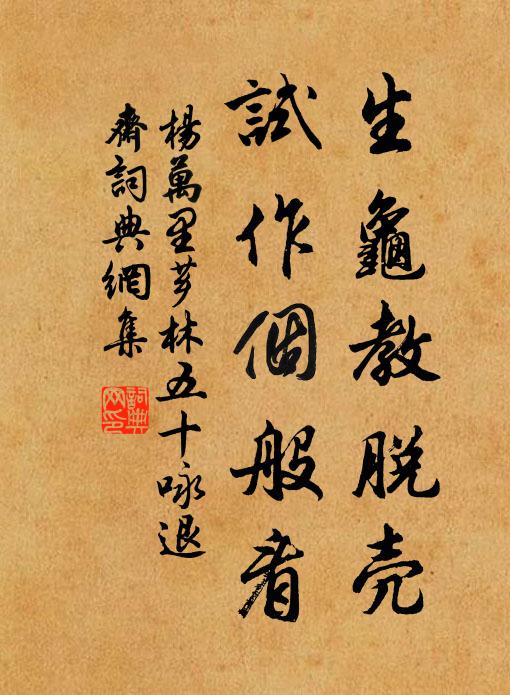 生龜教脫壳
試作個般看
楊萬里芗林五十咏退
齋詞典網集
詞典
网印